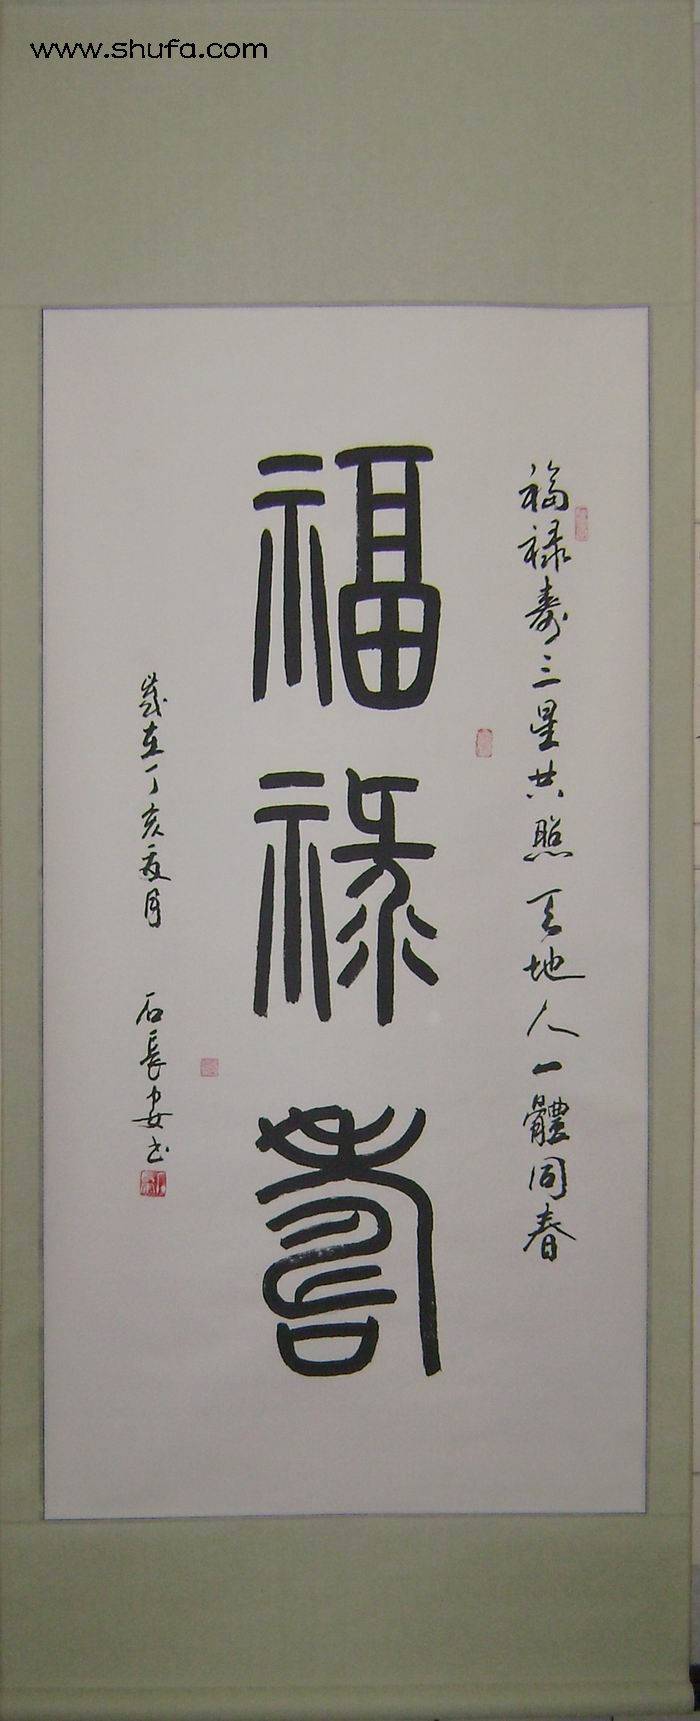 www.shufa.com
福祿壽三星共照天地人一體同春
福祿壽
歲在丁亥夏月 石長安書